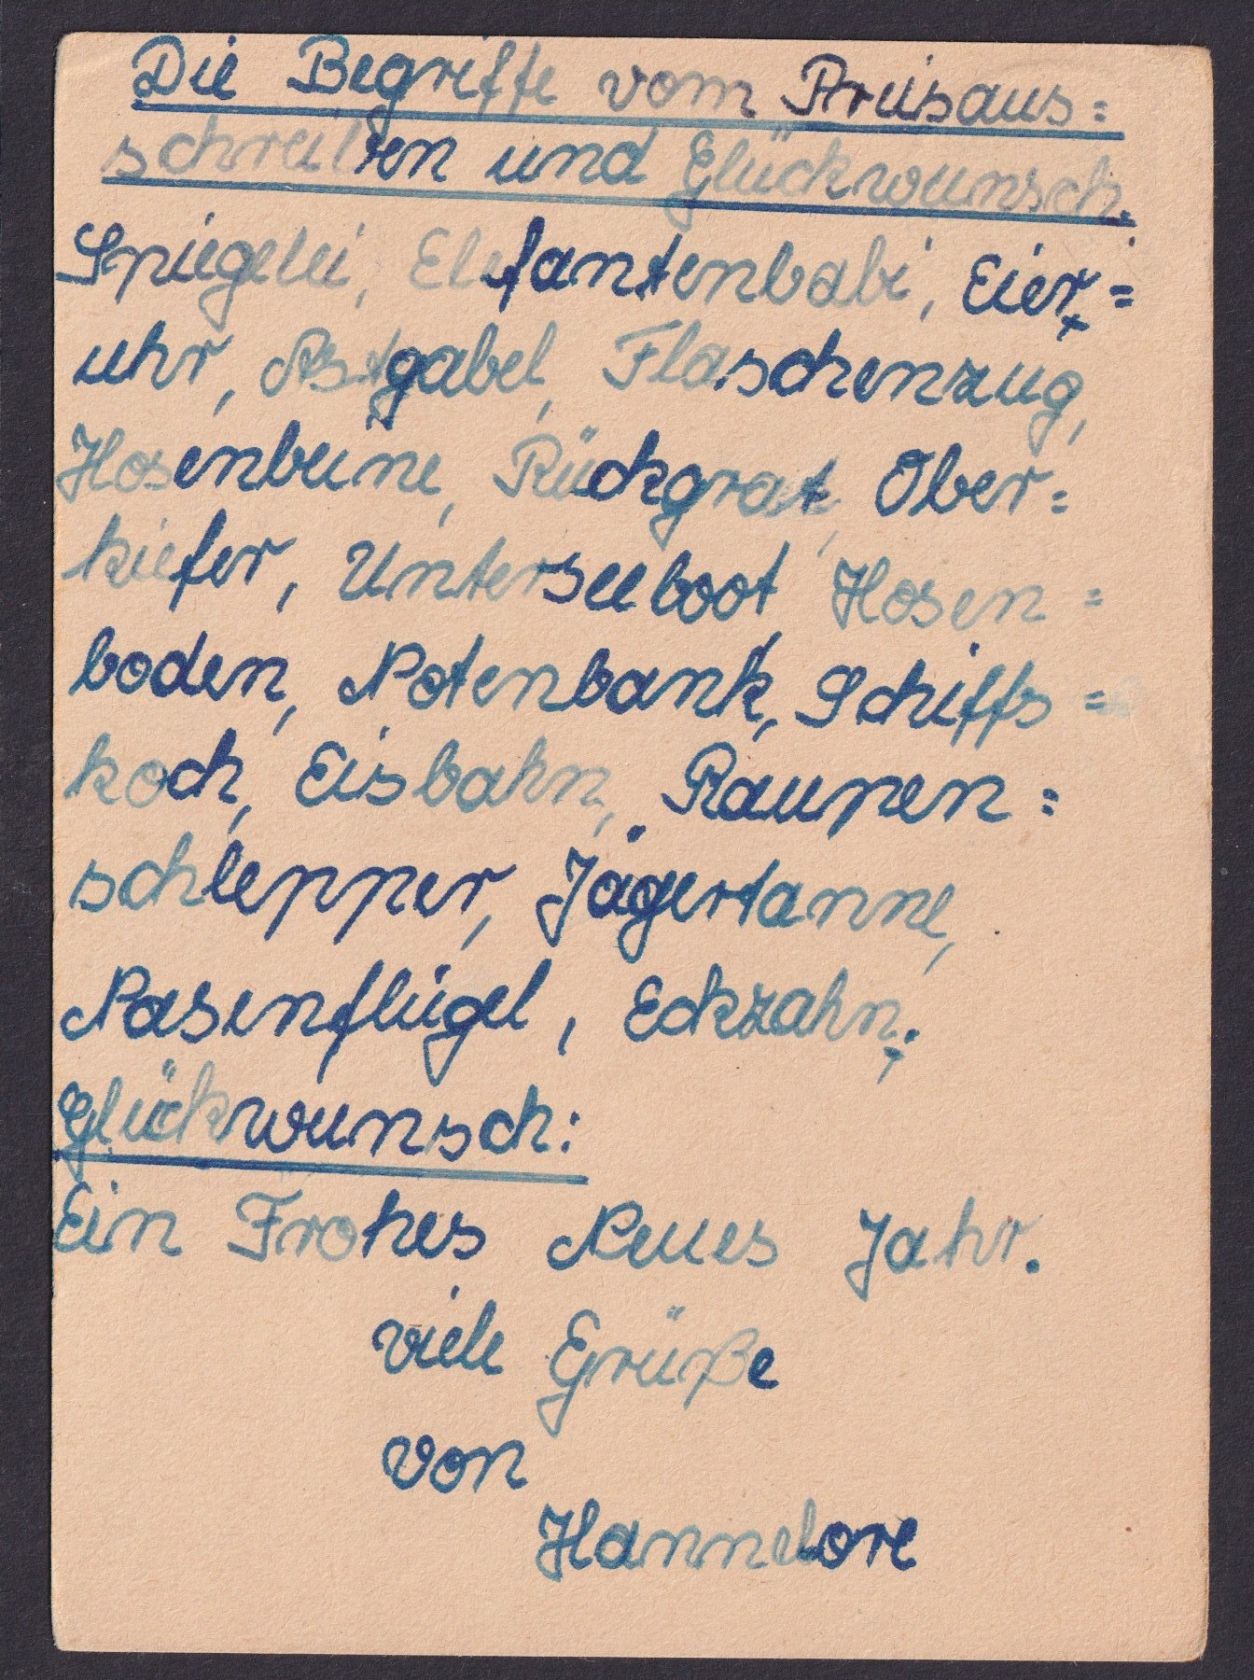 Die Begriffe vom Preisaus=
schreiben und Glückwunsch.
Spiegelei, Elefantenbabi, Eier=
uhr, Astgabel, Flaschenzug,
Hosenbeine, Rückgrat, Ober=
kiefer, Unterseeboot, Hosen=
boden, Notenbank, Schiffs=
koch, Eisbahn, Raupen=
schlepper, Jägertanne,
Nasenflügel, Eckzahn.
Glückwunsch:
Ein Frohes Neues Jahr.
viele Grüße
von
Hannelore